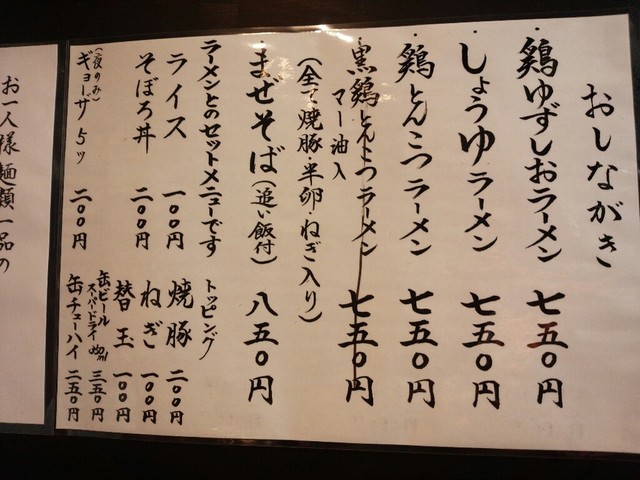 おしながき
鶏ゆずしおラーメン 七五〇円
しょうゆラーメン 七五〇円
鶏とんこつラーメン 七五〇円
黒鶏とんこつラーメン 七五〇円
マー油入
(全て焼豚・半卵・ねぎ入り)
まぜそば(追い飯付) 八五〇円
ラーメンとのセットメニューです
ライス 一〇〇円
そぼろ丼 二〇〇円
(夜のみ)
ギョーザ5ツ 二〇〇円
トッピング
焼豚 二〇〇円
ねぎ 一〇〇円
替玉 一〇〇円
缶ビール 三五〇円
スーパードライ 350ml
缶チューハイ 二五〇円
お一人様麺類一品の